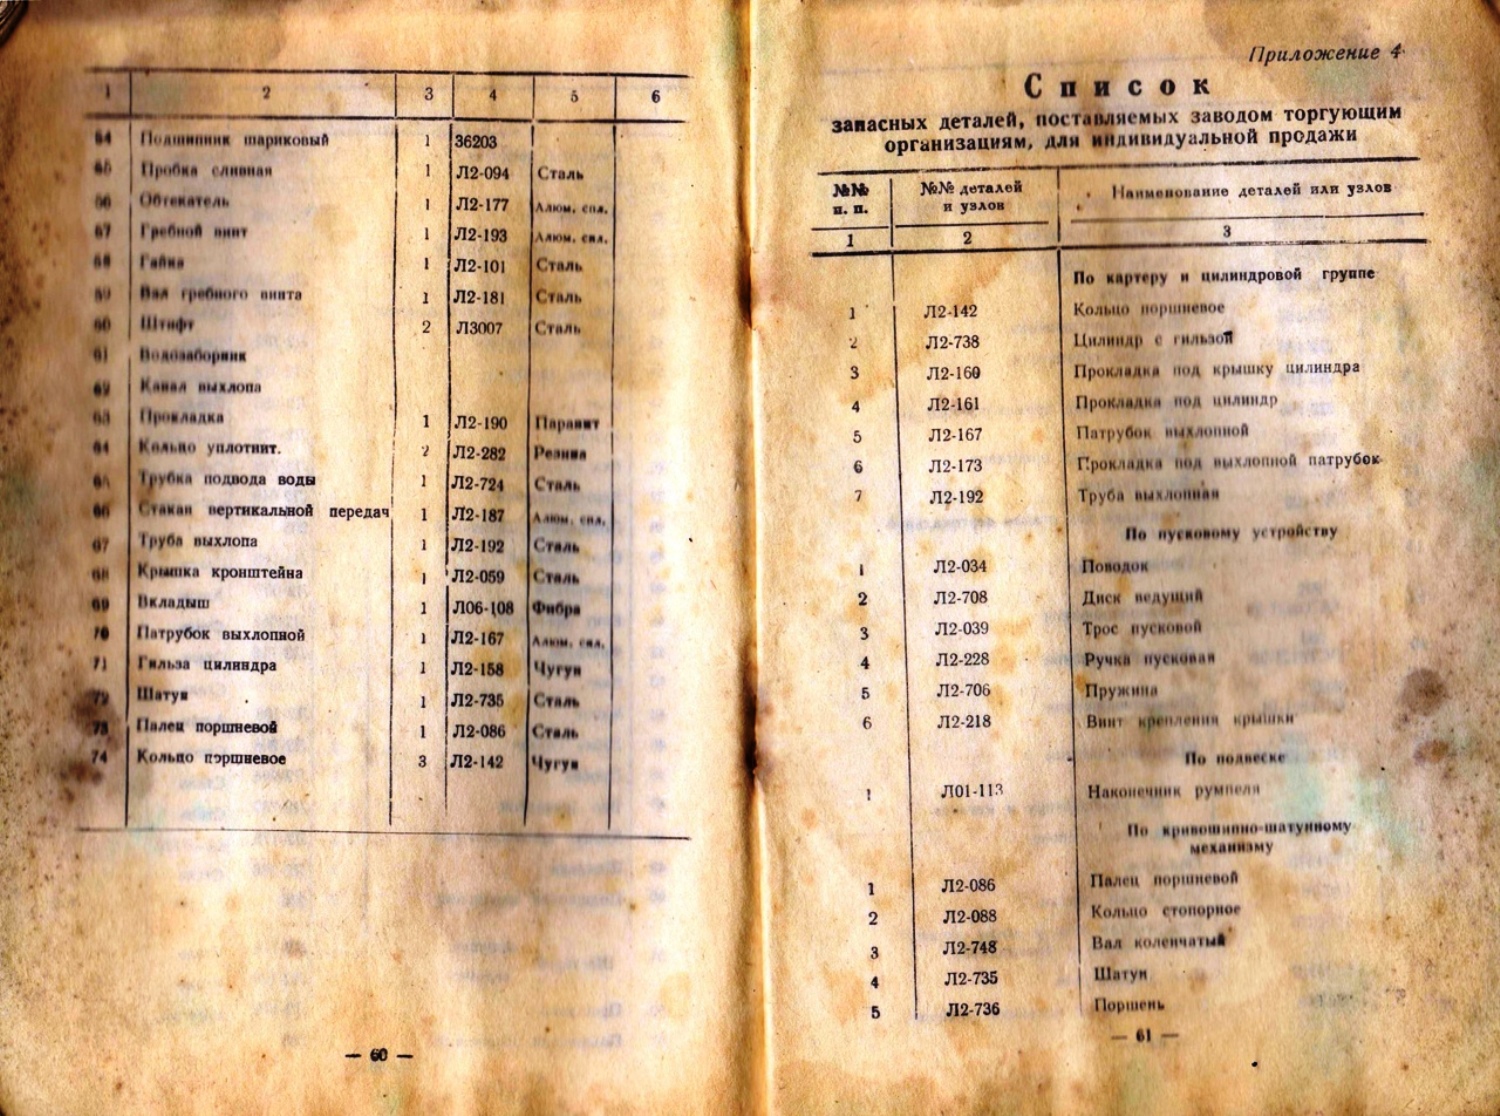 1 2 3 4 5 6
54 Подшипник шариковый 1 36203
55 Пробка сливная 1 Л2-094 Сталь
56 Обтекатель 1 Л2-177 Алюм. спл.
57 Гребной винт 1 Л2-193 Алюм. спл.
58 Гайка 1 Л2-101 Сталь
59 Вал гребного винта 1 Л2-181 Сталь
60 Штифт 2 Л3007 Сталь
61 Водозаборник
62 Канал выхлопа
63 Прокладка 1 Л2-190 Паранит
64 Кольцо уплотнит. 2 Л2-282 Резина
65 Трубка подвода воды 1 Л2-724 Сталь
66 Стакан вертикальной передач 1 Л2-187 Алюм. спл.
67 Труба выхлопа 1 Л2-192 Сталь
68 Крышка кронштейна 1 Л2-059 Сталь
69 Вкладыш 1 Л06-108 Фибра
70 Патрубок выхлопной 1 Л2-167 Алюм. спл.
71 Гильза цилиндра 1 Л2-158 Чугун
72 Шатун 1 Л2-735 Сталь
73 Палец поршневой 1 Л2-086 Сталь
74 Кольцо поршневое 3 Л2-142 Чугун
— 60 —
Приложение 4
Список
запасных деталей, поставляемых заводом торгующим
организациям, для индивидуальной продажи
№№ №№ деталей Наименование деталей или узлов
п. п. и узлов
1 2 3
По картеру и цилиндровой группе
1 Л2-142 Кольцо поршневое
2 Л2-738 Цилиндр с гильзой
3 Л2-160 Прокладка под крышку цилиндра
4 Л2-161 Прокладка под цилиндр
5 Л2-167 Патрубок выхлопной
6 Л2-173 Прокладка под выхлопной патрубок
7 Л2-192 Труба выхлопная
По пусковому устройству
1 Л2-034 Поводок
2 Л2-708 Диск ведущий
3 Л2-039 Трос пусковой
4 Л2-228 Ручка пусковая
5 Л2-706 Пружина
6 Л2-218 Винт крепления крышки
По подвеске
1 Л01-113 Наконечник румпеля
По кривошипно-шатунному
механизму
1 Л2-086 Палец поршневой
2 Л2-088 Кольцо стопорное
3 Л2-748 Вал коленчатый
4 Л2-735 Шатун
5 Л2-736 Поршень
— 61 —